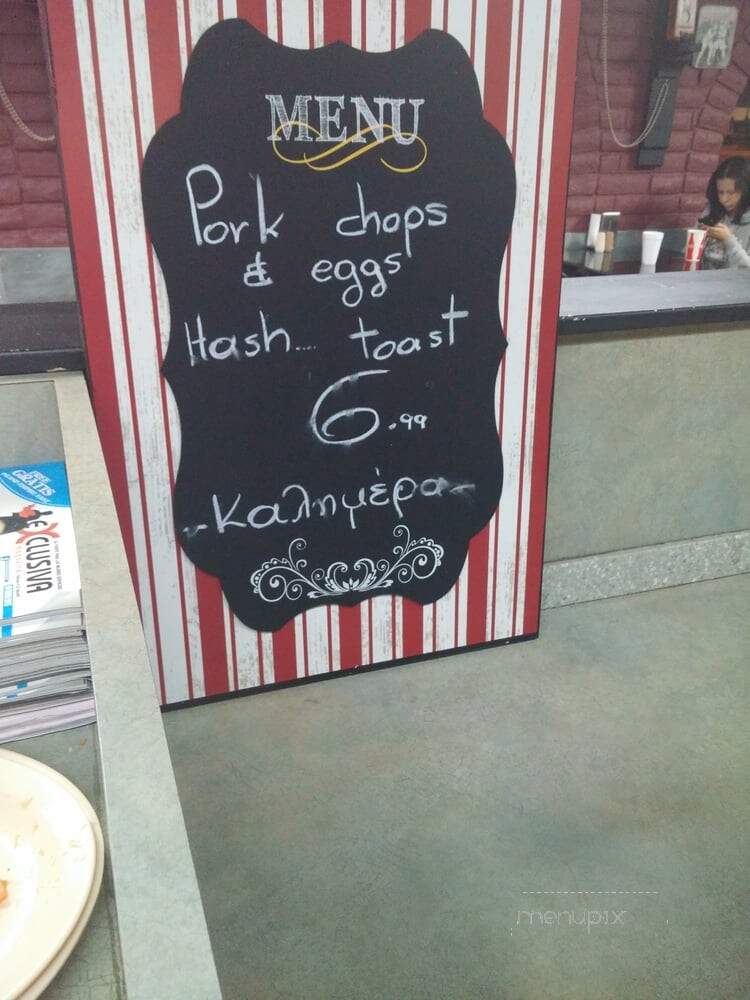 MENU
Pork chops
& eggs
Hash.... toast
6.99
-Καλημέρα-
FREE
GRATIS
EXCLUSIVA
menupix